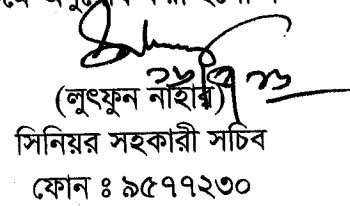 (লুৎফুন নাহার)
সিনিয়র সহকারী সচিব
ফোন ঃ ৯৫৭৭২৩০